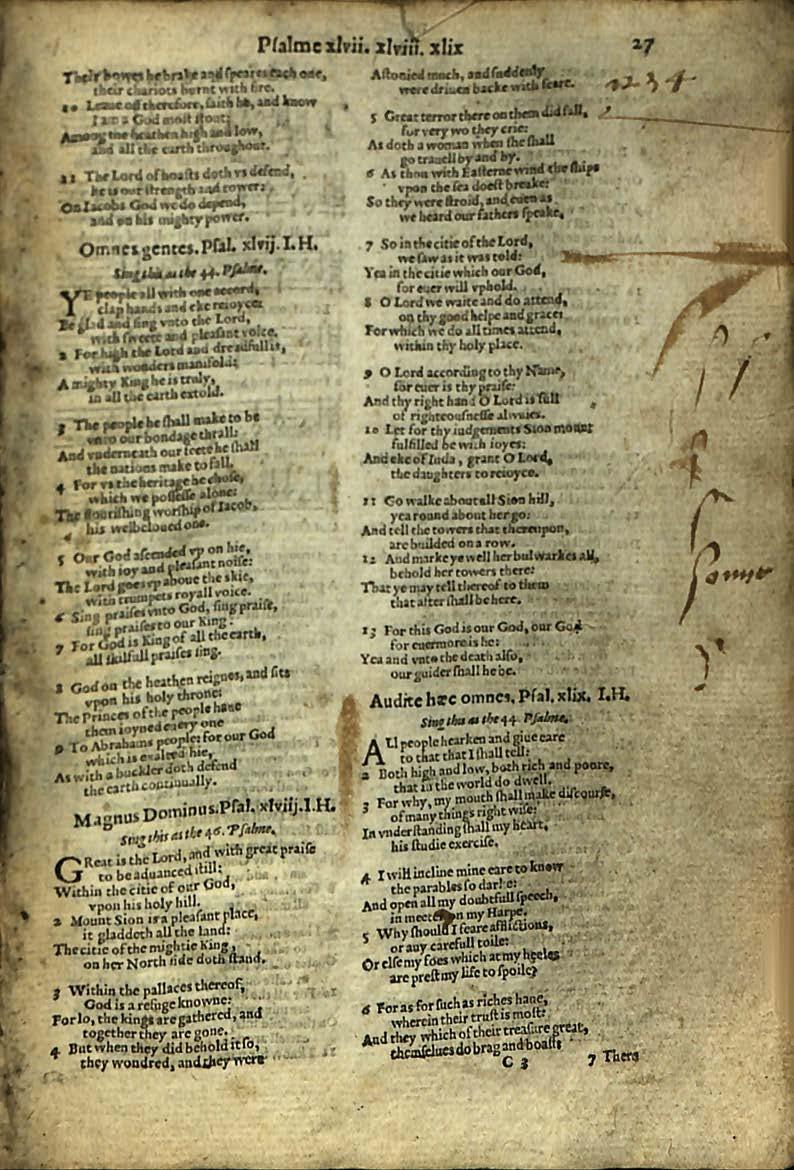 Psalme xlvii. xlviii. xlix
27
Their bowes he brake and speares each one,
their chariots burnt with fire.
10 Leaue off therefore, saith he, and know
I am a God most stout:
Among the heathen high and low,
and all the earth throughout.
11 The Lord of hoasts doth vs defend,
he is our strength and tower:
On Iacobs God we do depend,
and on his mighty power.
Omnes gentes. Psal. xlvij. I.H.
Sing this as the 44. Psalme.
YE people all with one accord,
clap hands and eke reioyce:
Be glad and sing vnto the Lord,
with sweete and pleasant voice.
2 For high the Lord and dreadfull is,
with wonders manifold:
A mighty King he is truly,
in all the earth extold.
3 The people he shall make to be
vnto our bondage thrall:
And vnderneath our feete he shall
the nations make to fall.
4 For vs the heritage he chose,
which we possesse alone:
The flourishing worship of Iacob,
his welbeloued one.
5 Our God ascended vp on hie,
with ioy and pleasant noise:
The Lord goes vp aboue the skie,
with trumpets royall voice.
6 Sing praises vnto God, sing praise,
sing praises to our King:
7 For God is King of all the earth,
all skilfull praises sing.
8 God on the heathen reignes, and sits
vpon his holy throne:
The Princes of the people haue
them ioyned euery one
9 To Abrahams people: for our God
which is exalted hie,
As with a buckler doth defend
the earth continually.
Magnus Dominus. Psal. xlviij. I.H.
Sing this as the 46. Psalme.
GReat is the Lord, and with great praise
to be aduanced still:
Within the citie of our God,
vpon his holy hill.
2 Mount Sion is a pleasant place,
it gladdeth all the land:
The citie of the mightie King,
on her North side doth stand.
3 Within the pallaces thereof,
God is a refuge knowne:
For lo, the kings are gathered, and
together they are gone.
4 But when they did behold it so,
they wondred, and they were
Astonied much, and suddenly
were driuen backe with feare.
5 Great terror there on them did fall,
for very wo they crie:
As doth a woman when she shall
go trauell by and by.
6 As thou with Easterne wind the ships
vpon the sea doest breake:
So they were stroid, and euen as
we heard our fathers speake,
7 So in the citie of the Lord,
we saw as it was told:
Yea in the citie which our God,
for euer will vphold.
8 O Lord we waite and do attend,
on thy good helpe and grace:
For which we do all times attend,
within thy holy place.
9 O Lord according to thy Name,
for euer is thy praise:
And thy right hand O Lord is full
of righteousnesse alwaies.
10 Let for thy iudgements Sion mount
fulfilled be with ioyes:
And eke of Iuda, grant O Lord,
the daughters to reioyce.
11 Go walke about all Sion hill,
yea round about her go:
And tell the towers that thereupon,
are builded on a row.
12 And marke ye well her bulwarkes all,
behold her towers there:
That ye may tell thereof to them
that after shall be here.
13 For this God is our God, our God
for euermore is he:
Yea and vnto the death also,
our guider shall he be.
Audite hæc omnes. Psal. xlix. I.H.
Sing this as the 44 Psalme.
ALl people hearken and giue eare
to that that I shall tell:
2 Both high and low, both rich and poore,
that in the world do dwell.
3 For why, my mouth shall make discourse,
of many things right wise:
In vnderstanding shall my heart,
his studie exercise.
4 I will incline mine eare to know
the parables so darke:
And open all my doubtfull speech,
in meeter on my Harpe.
5 Why should I feare afflictions,
or any carefull toile:
Or else my foes which at my heeles
are prest my life to spoile?
6 For as for such as riches haue,
wherein their trust is most:
And they which of their treasure great,
themselues do brag and boast:
C 3
7 There
1234